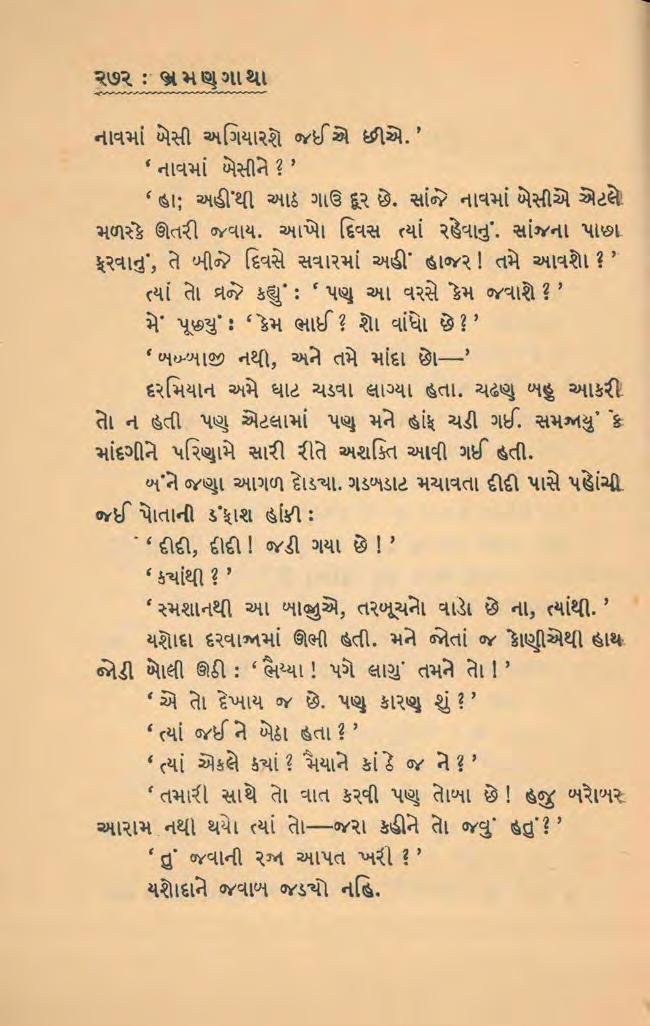 ૨૭૨ : ભ્રમણગાથા
નાવમાં બેસી અગિયારશે જઈએ છીએ.’
‘નાવમાં બેસીને?’
‘હા; અહીંથી આઠ ગાઉ દૂર છે. સાંજે નાવમાં બેસીએ એટલે
મળસ્કે ઊતરી જવાય. આખો દિવસ ત્યાં રહેવાનું. સાંજના પાછા
ફરવાનું, તે બીજે દિવસે સવારમાં અહીં હાજર! તમે આવશો?’
ત્યાં તો વ્રજે કહ્યું: ‘પણ આ વરસે કેમ જવાશે?’
મેં પૂછ્યું: ‘કેમ ભાઈ? શો વાંધો છે?’
‘બબ્બાજી નથી, અને તમે માંદા છો—’
દરમિયાન અમે ઘાટ ચડવા લાગ્યા હતા. ચઢણ બહુ આકરી
તો ન હતી પણ એટલામાં પણ મને હાંફ ચડી ગઈ. સમજાયું કે
માંદગીને પરિણામે સારી રીતે અશક્તિ આવી ગઈ હતી.
બંને જણા આગળ દોડ્યા. ગડબડાટ મચાવતા દીદી પાસે પહોંચી
જઈ પોતાની ડંફાશ હાંકી:
‘દીદી, દીદી! જડી ગયા છે!’
‘ક્યાંથી?’
‘સ્મશાનથી આ બાજુએ, તરબૂચનો વાડો છે ના, ત્યાંથી.’
યશોદા દરવાજામાં ઊભી હતી. મને જોતાં જ કોણીએથી હાથ
જોડી બોલી ઊઠી: ‘ભૈય્યા! પગે લાગું તમને તો!’
‘એ તો દેખાય જ છે. પણ કારણ શું?’
‘ત્યાં જઈને બેઠા હતા?’
‘ત્યાં એકલે ક્યાં? મૈયાને કાંઠે જ ને?’
‘તમારી સાથે તો વાત કરવી પણ તોબા છે! હજુ બરોબર
આરામ નથી થયો ત્યાં તો—જરા કહીને તો જવું હતું?’
‘તું જવાની રજા આપત ખરી?’
યશોદાને જવાબ જડ્યો નહિ.